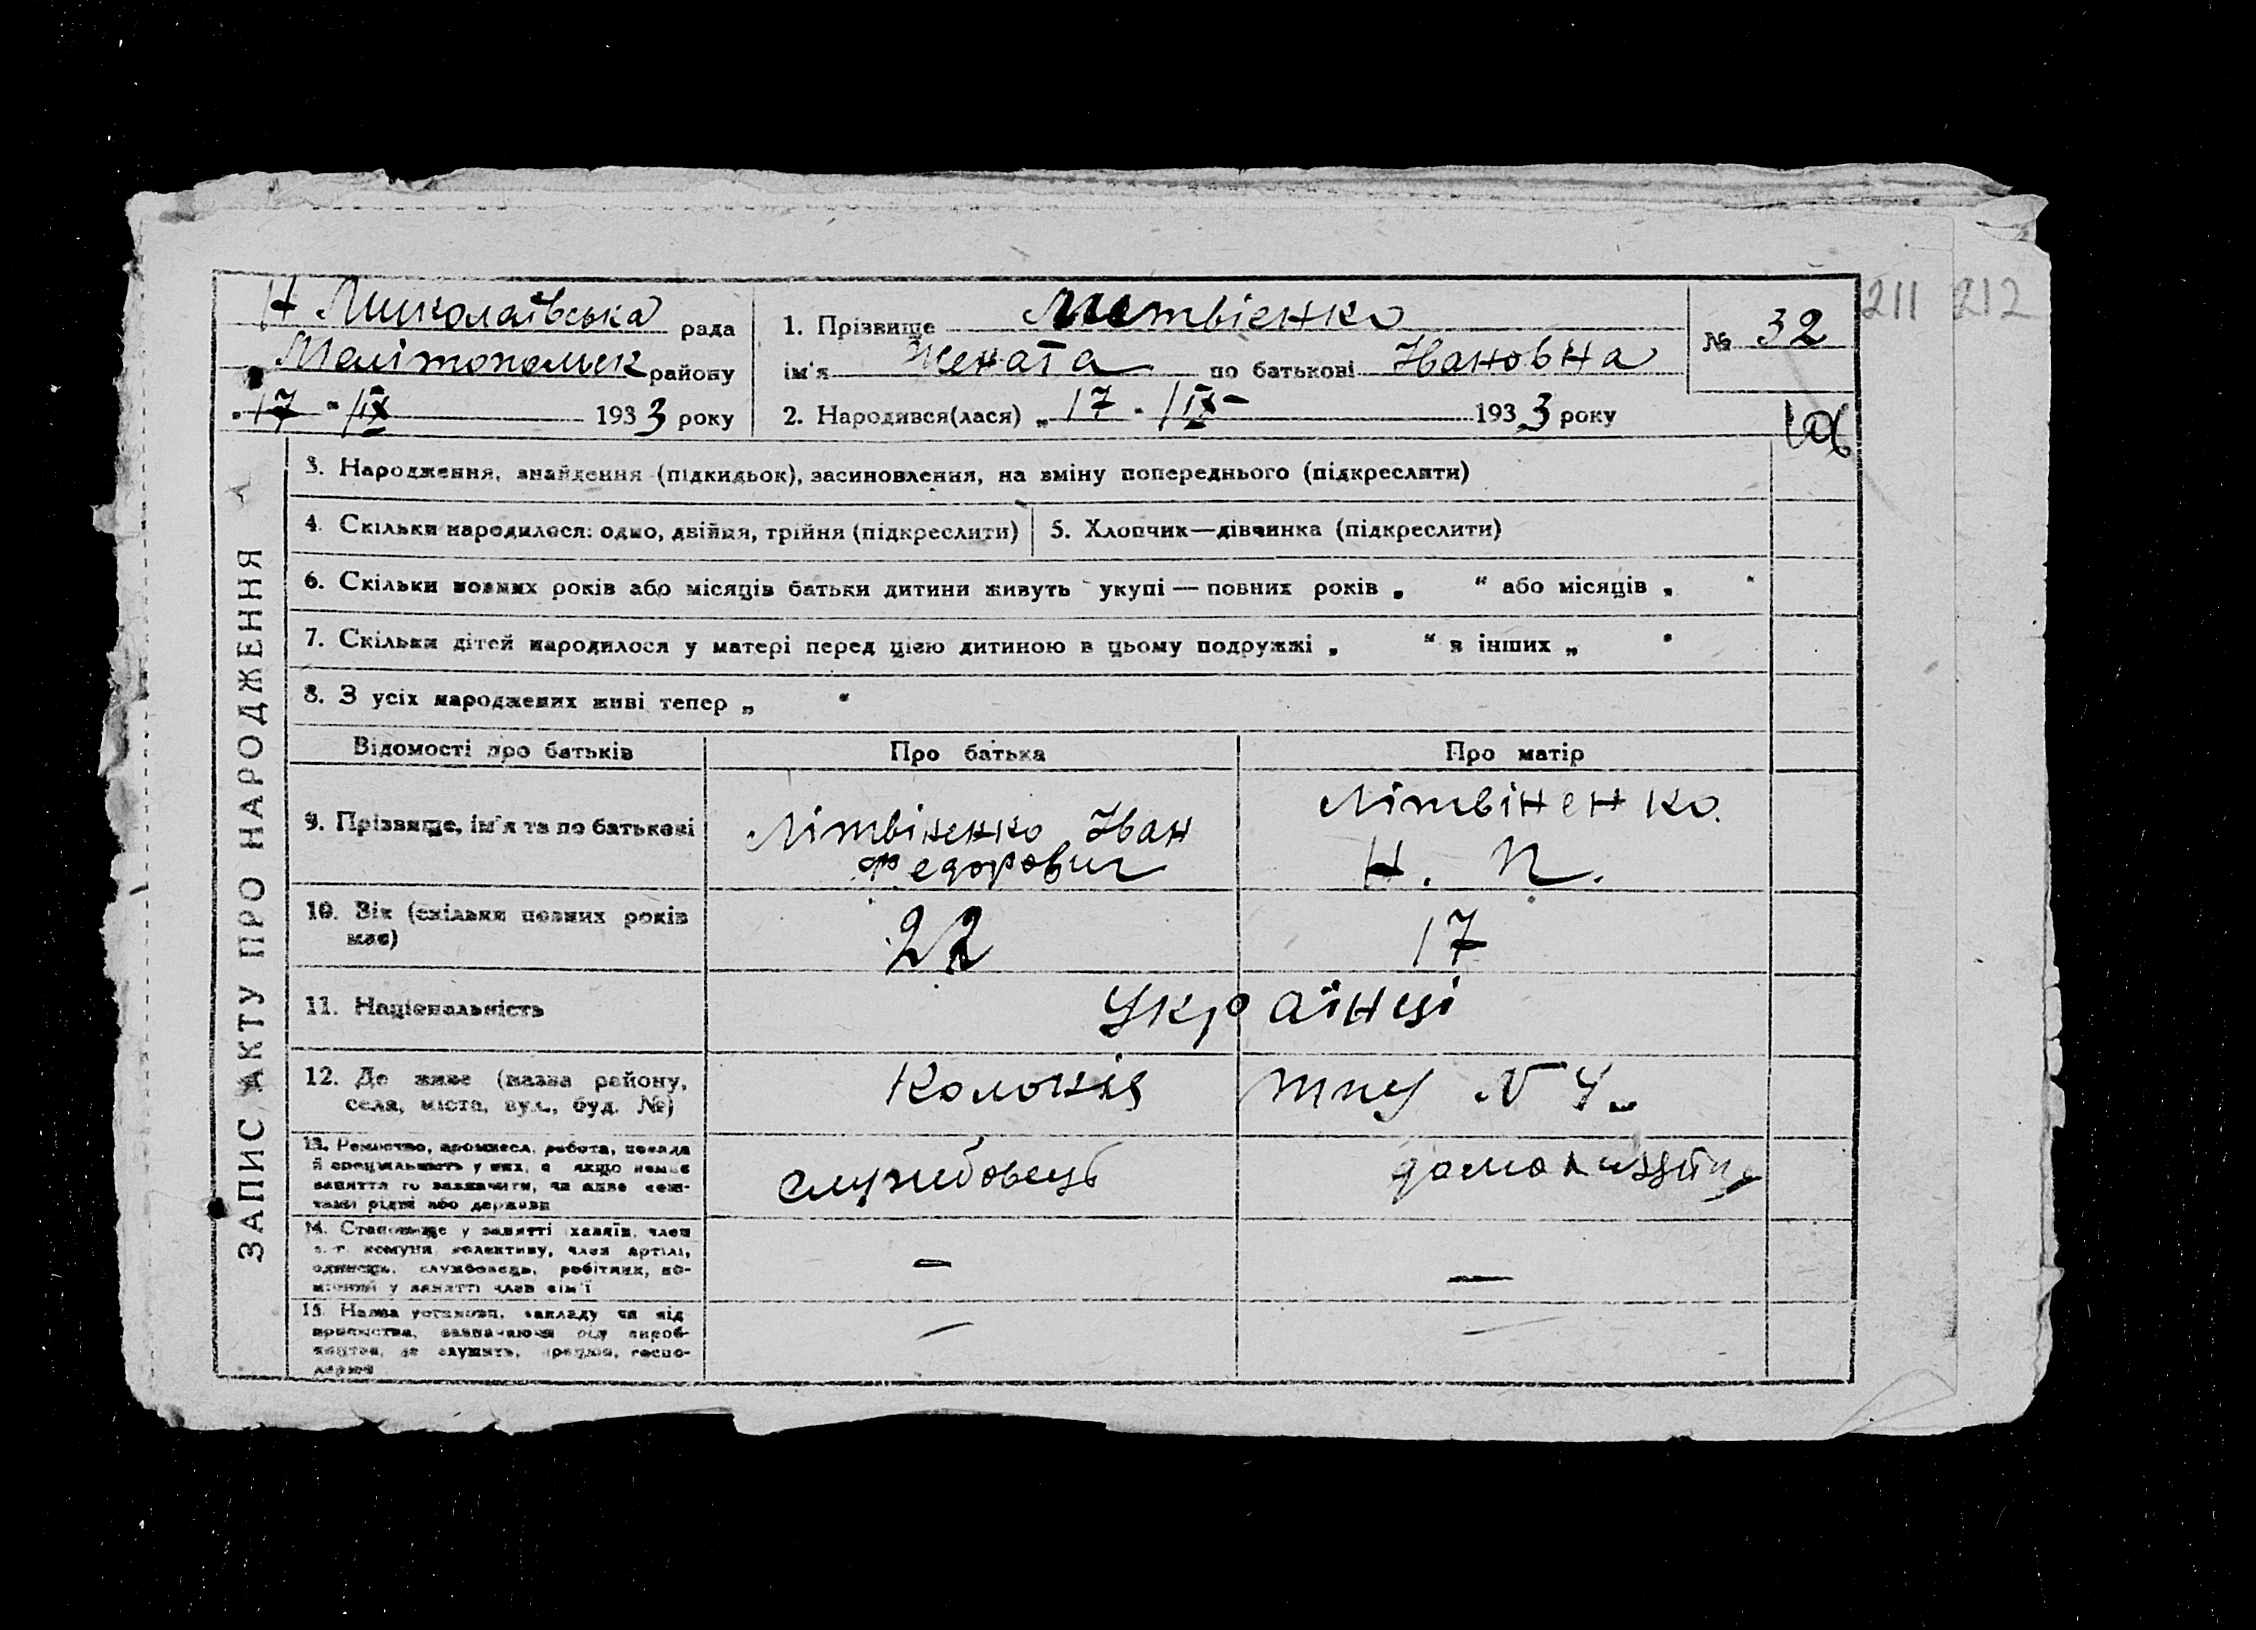 Н Миколаївська рада
Мелітопольск району
„17 “ IX 1933 року
1. Прізвище Литвіенко
ім'я Жената по батькові Івановна
2. Народився(лася) „17 “ IX 1933 року
№ 32
211 212
ЗАПИС АКТУ ПРО НАРОДЖЕННЯ
3. Народження, знайдення (підкидьок), засиновлення, на зміну попереднього (підкреслити)
4. Скільки народилося: одно, двійня, трійня (підкреслити)
5. Хлопчик—дівчинка (підкреслити)
6. Скільки повних років або місяців батьки дитини живуть укупі — повних років „ “ або місяців „ “
7. Скільки дітей народилося у матері перед цією дитиною в цьому подружжі „ “ в інших „ “
8. З усіх народжених живі тепер „ “
Відомості про батьків Про батька Про матір
9. Прізвище, ім'я та по батькові
Літвіненко Іван
Федорович
Літвіненко
Н. П.
10. Вік (скільки повних років
має)
22
17
11. Національність
Українці
12. Де живе (назва району,
села, міста, вул., буд. №)
Колонія
тпу № 4
13. Ремество, промисел, робота, посада
й спеціяльність у них, а якщо немає
заняття то зазначити, чи живе кош-
тами рідні або держави
службовець
14. Становище у занятті хазяїн, член
с.-г. комуни, колективу, член артілі,
одинець, службовець, робітник, по-
мічний у занятті член сім'ї
—
—
15. Назва установи, закладу чи під
приємства, зазначаючи рід вироб-
ництва, де служить, працює, госпо-
дарює
—
—